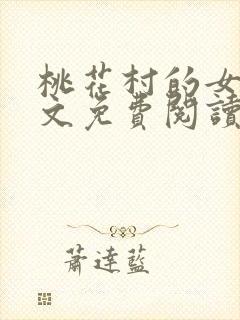 桃花村的女
文免費閱讀
蕭達藍